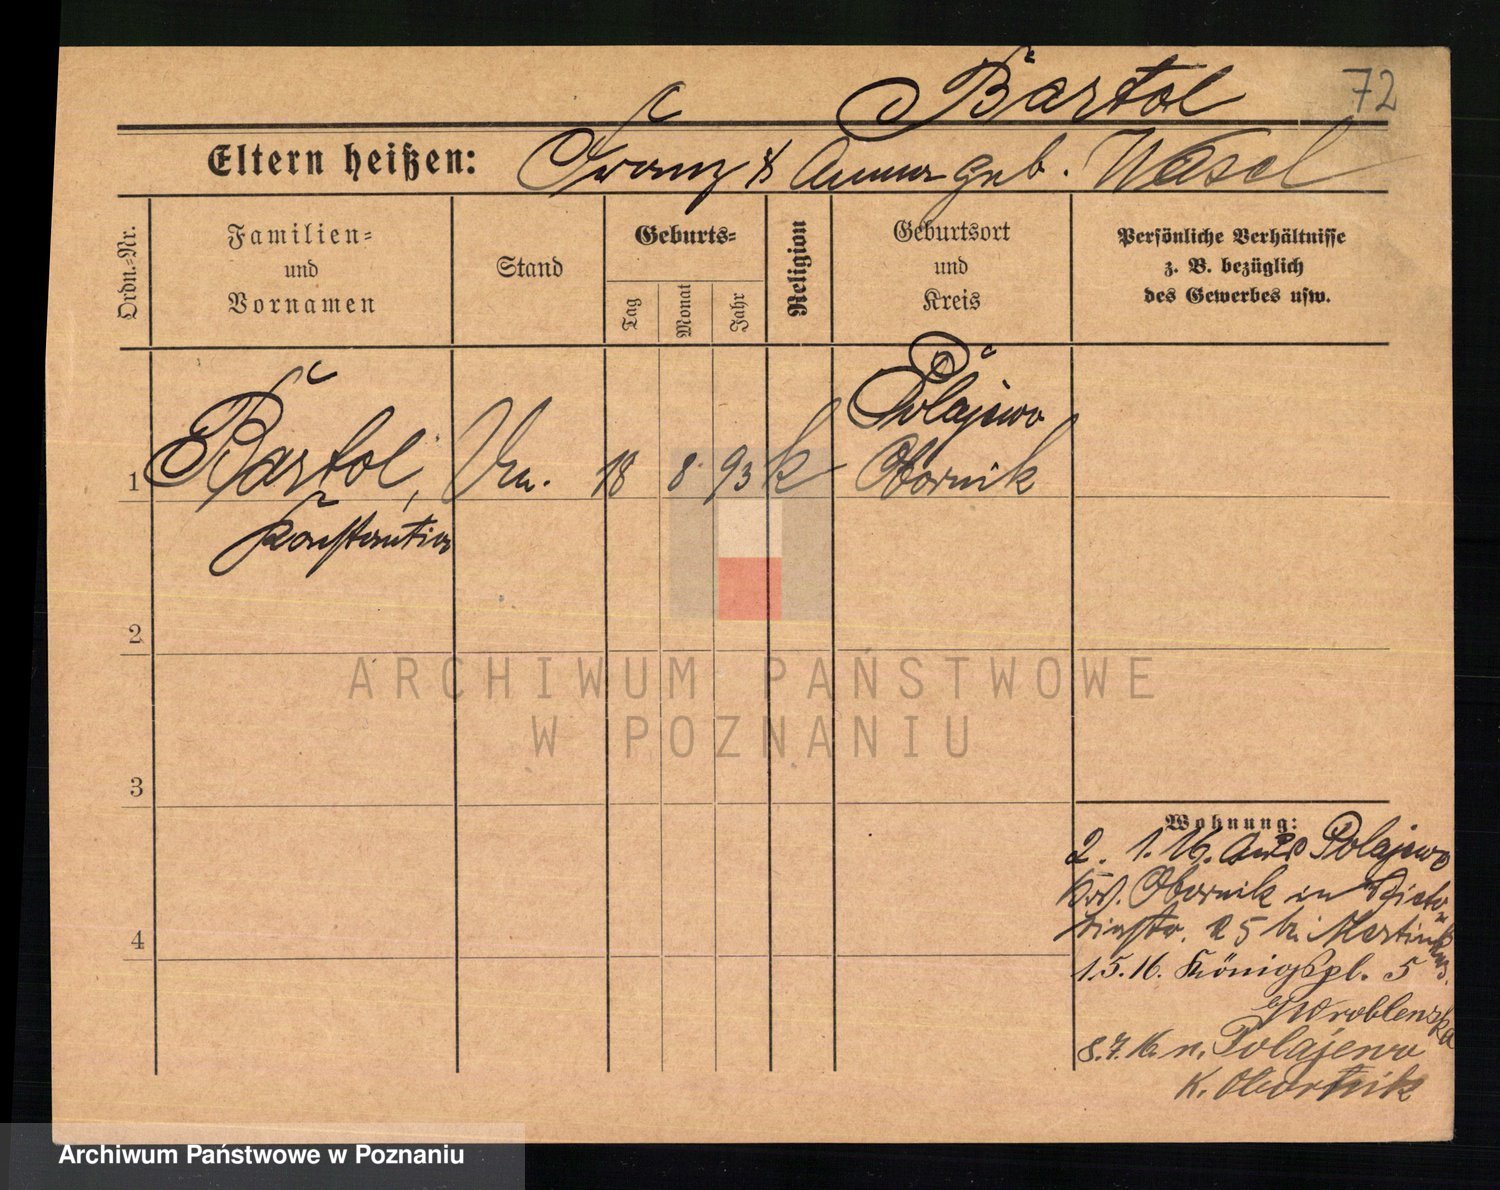 Bartol
72
Eltern heißen: Franz & Anna geb. Wasel
Ordn.-Nr.
Familien-
und
Vornamen
Stand
Geburts-
Tag
Monat
Jahr
Religion
Geburtsort
und
Kreis
Persönliche Verhältnisse
z. B. bezüglich
des Gewerbes usw.
1
Bartol,
Konstantin
18
8.
93
k
Polajewo
Obornik
2
3
4
Wohnung:
2. 1. 16. aus Polajewo
Krs. Obornik in
25 bei Martin
1.5.16. Königspl. 5
b/ Wroblenska
8.7.16. n. Polajewo
K. Obornik
ARCHIWUM PAŃSTWOWE
W POZNANIU
Archiwum Państwowe w Poznaniu